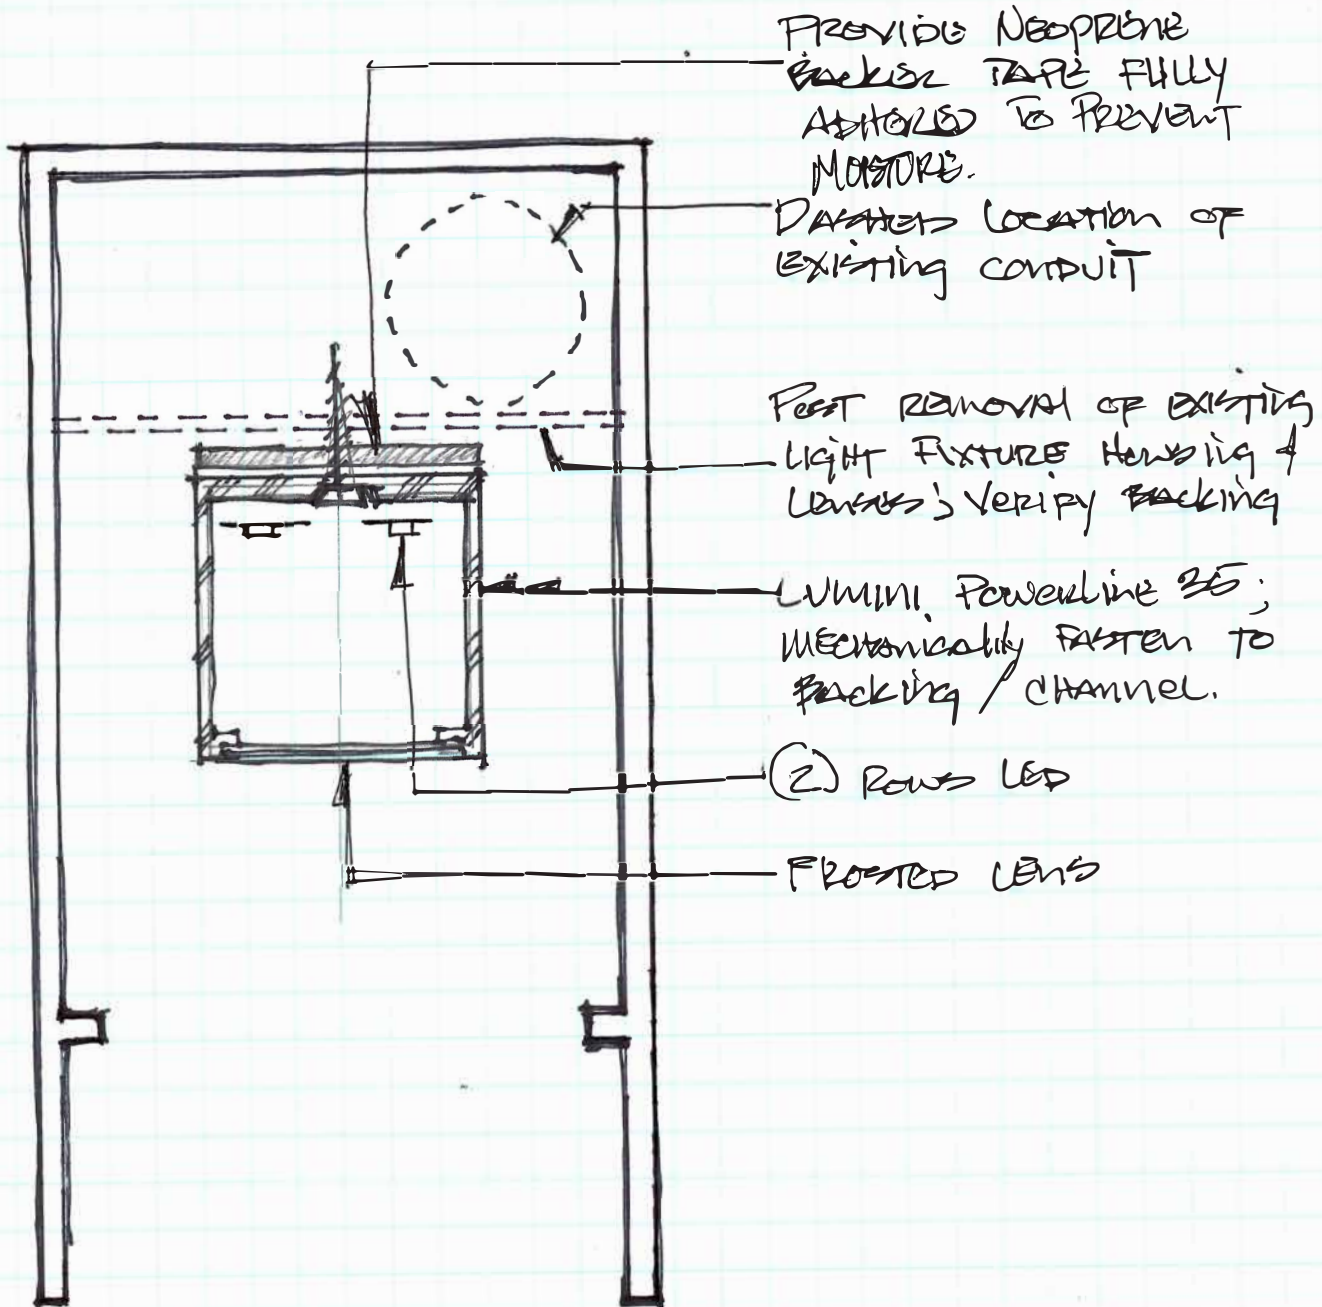 PROVIDE NEOPRENE
BACKER TAPE FULLY
ADHERED TO PREVENT
MOISTURE.
DASHED LOCATION OF
EXISTING CONDUIT
POST REMOVAL OF EXISTING
LIGHT FIXTURE HOUSING &
LENSES; VERIFY BACKING
LUMINI POWERLINE 35;
MECHANICALLY FASTEN TO
BACKING / CHANNEL.
(2) ROWS LED
FROSTED LENS